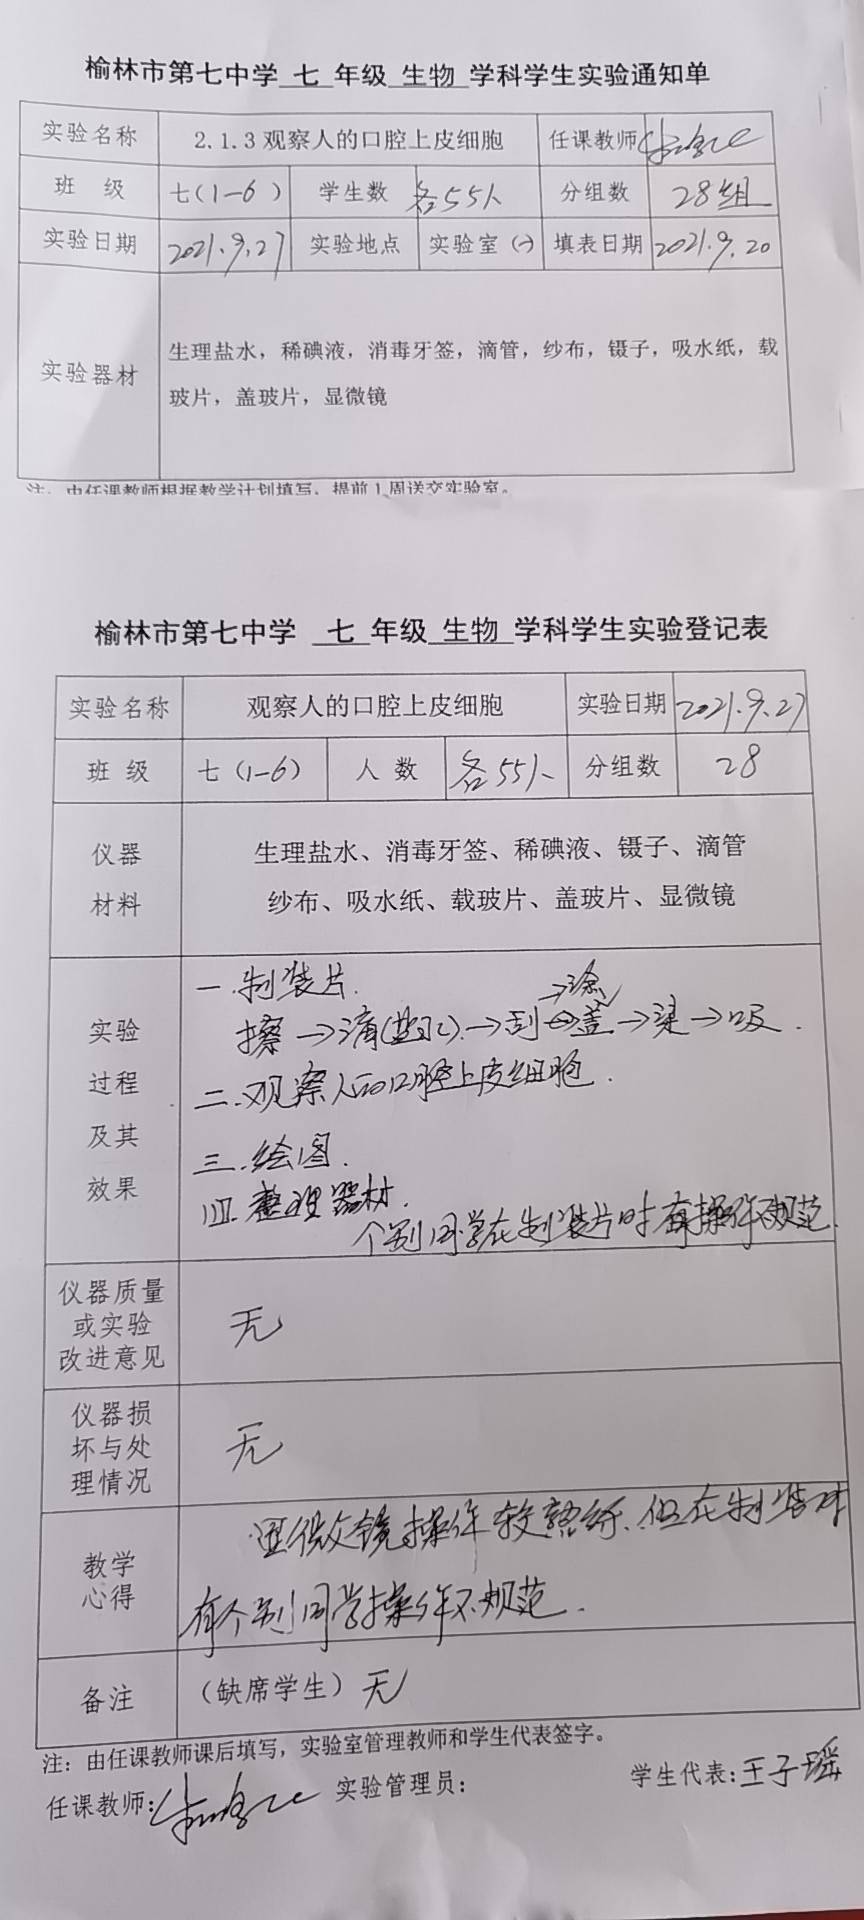 榆林市第七中学 七 年级 生物 学科学生实验通知单
实验名称 2.1.3观察人的口腔上皮细胞 任课教师
班 级 七(1-6) 学生数 各55人 分组数 28组
实验日期 2021.9.27 实验地点 实验室(一) 填表日期 2021.9.20
实验器材
生理盐水，稀碘液，消毒牙签，滴管，纱布，镊子，吸水纸，载
玻片，盖玻片，显微镜
注：由任课教师根据教学计划填写，提前1周送交实验室。
榆林市第七中学 七 年级 生物 学科学生实验登记表
实验名称 观察人的口腔上皮细胞 实验日期 2021.9.27
班 级 七(1-6) 人 数 各55人 分组数 28
仪器
材料
生理盐水、消毒牙签、稀碘液、镊子、滴管
纱布、吸水纸、载玻片、盖玻片、显微镜
实验
过程
及其
效果
一.制装片.
→涂
擦→滴(盐水)→刮→盖→染→吸.
二.观察人的口腔上皮细胞.
三.绘图.
四.整理器材.
个别同学在制装片时有操作不规范.
仪器质量
或实验
改进意见
无
仪器损
坏与处
理情况
无
教学
心得
显微镜操作较熟练.但在制装时
有个别同学操作不规范.
备注 （缺席学生）无
注：由任课教师课后填写，实验室管理教师和学生代表签字。
任课教师: 实验管理员: 学生代表:王子瑶